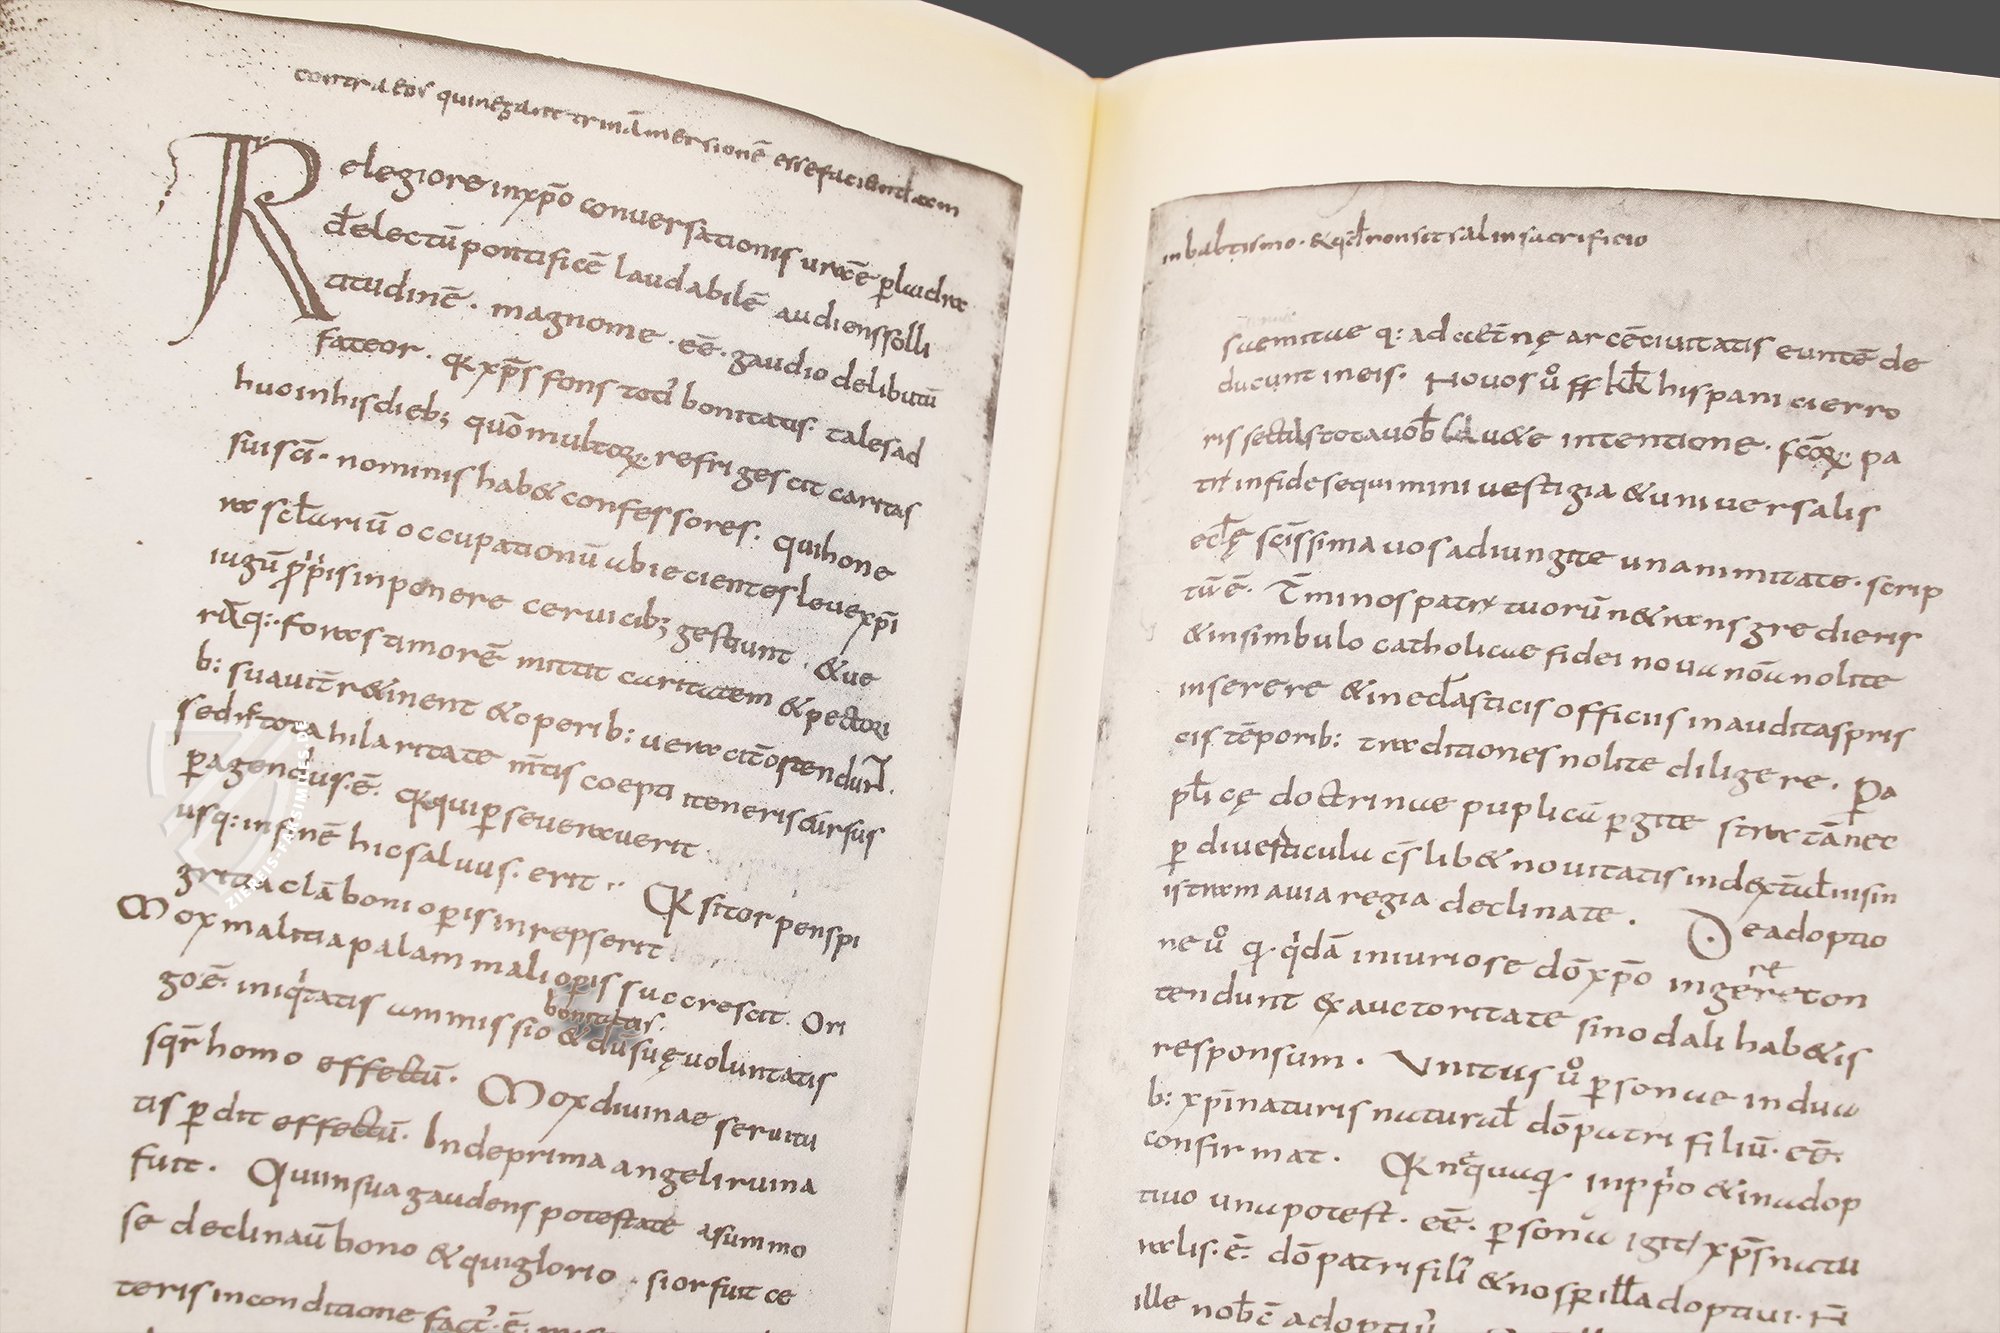 contra eos qui negant trinā mersionē esse faciendam
Relegiore in xp̄o conuersationis urae p̄ laudira
d̄electū pontificē laudabilē audiens solli
citudinē · magnome · eē · gaudio delibutū
fateor · q̄ xp̄s fons toti' bonitatis · tales ad
huo in his dieb; quō multoꝝ refrigescit caritas
sui sc̄i · nominis hab& confessores · qui hone
ra sc̄lariū occupationū abiecientes leue xp̄i
iugū p̄p̄is inponere ceruicib; gestiunt · & ue
q: fortas amorē mittit caritatem & pectori
b: suauit̄ r&inent & operib: ueraciт̄ ostendunt ·
sed tota hilaritate m̄tis coepti iteneris cursus
p̄agendus · ē · Qui p̄seuerauerit
usq: in finē hic saluus · erit ·· sitor penspi
gritia clā boni op̄is inrepserit
Mox malitia palam mali op̄is succrescit · Ori
bonitatis ·
go · ē · iniq̄tatis ammissio & dū suę uoluntatis
homo effectū · Mox diuinae seruitu
tis p̄dit effectū · Inde prima angeli ruina
fuit · Qui in sua gaudens potestate a summo
se declinau̅ bono & qui glorio · sior fuit ce
teris in conditione fact' · ē ·
in babtismo · & qđ non sit sal in sacrificio
suemitue q: ad aet̄nę arcē ciuitatis euntē de
ducunt in eis · Nouos ū ff kk hispanici erro
ris sectas tota uob intentione · sc̄oꝝ pa
trū in fide sequimini uestigia & uniuersalis
eclę sc̄issima uos adiungite unanimitate · scrip
tū ē · T̄minos patrū tuorū n& ransgredieris
& in simbulo catholicae fidei noua nōa nolite
inserere & in eclasticis officiis inauditas pris
cis tēporib: traditiones nolite diligere · Pa
p̄licę doctrinae puplicā p̄gite stratā nec
p̄ diuerticula cs̄lib& nouitatis in dext̄ul sinis
istram a uia regia declinate · De adoptio
ne ū q · q̄dā iniuriose dō xp̄o ingerere con
tendunt & auctoritate sinodali hab&is
responsum · Unitus ū p̄sonae in dua
b: xp̄i naturis natural dō patri filiū · eē ·
confirmat · neq̄uaq̄ in pp̄io & in adop
tiuo una potest · eē · p̄sona igit' xp̄s natu
ralis · ē · dō patri fili' & nos p̄ illū adoptiui ·
ille nob̄c adoptiu'